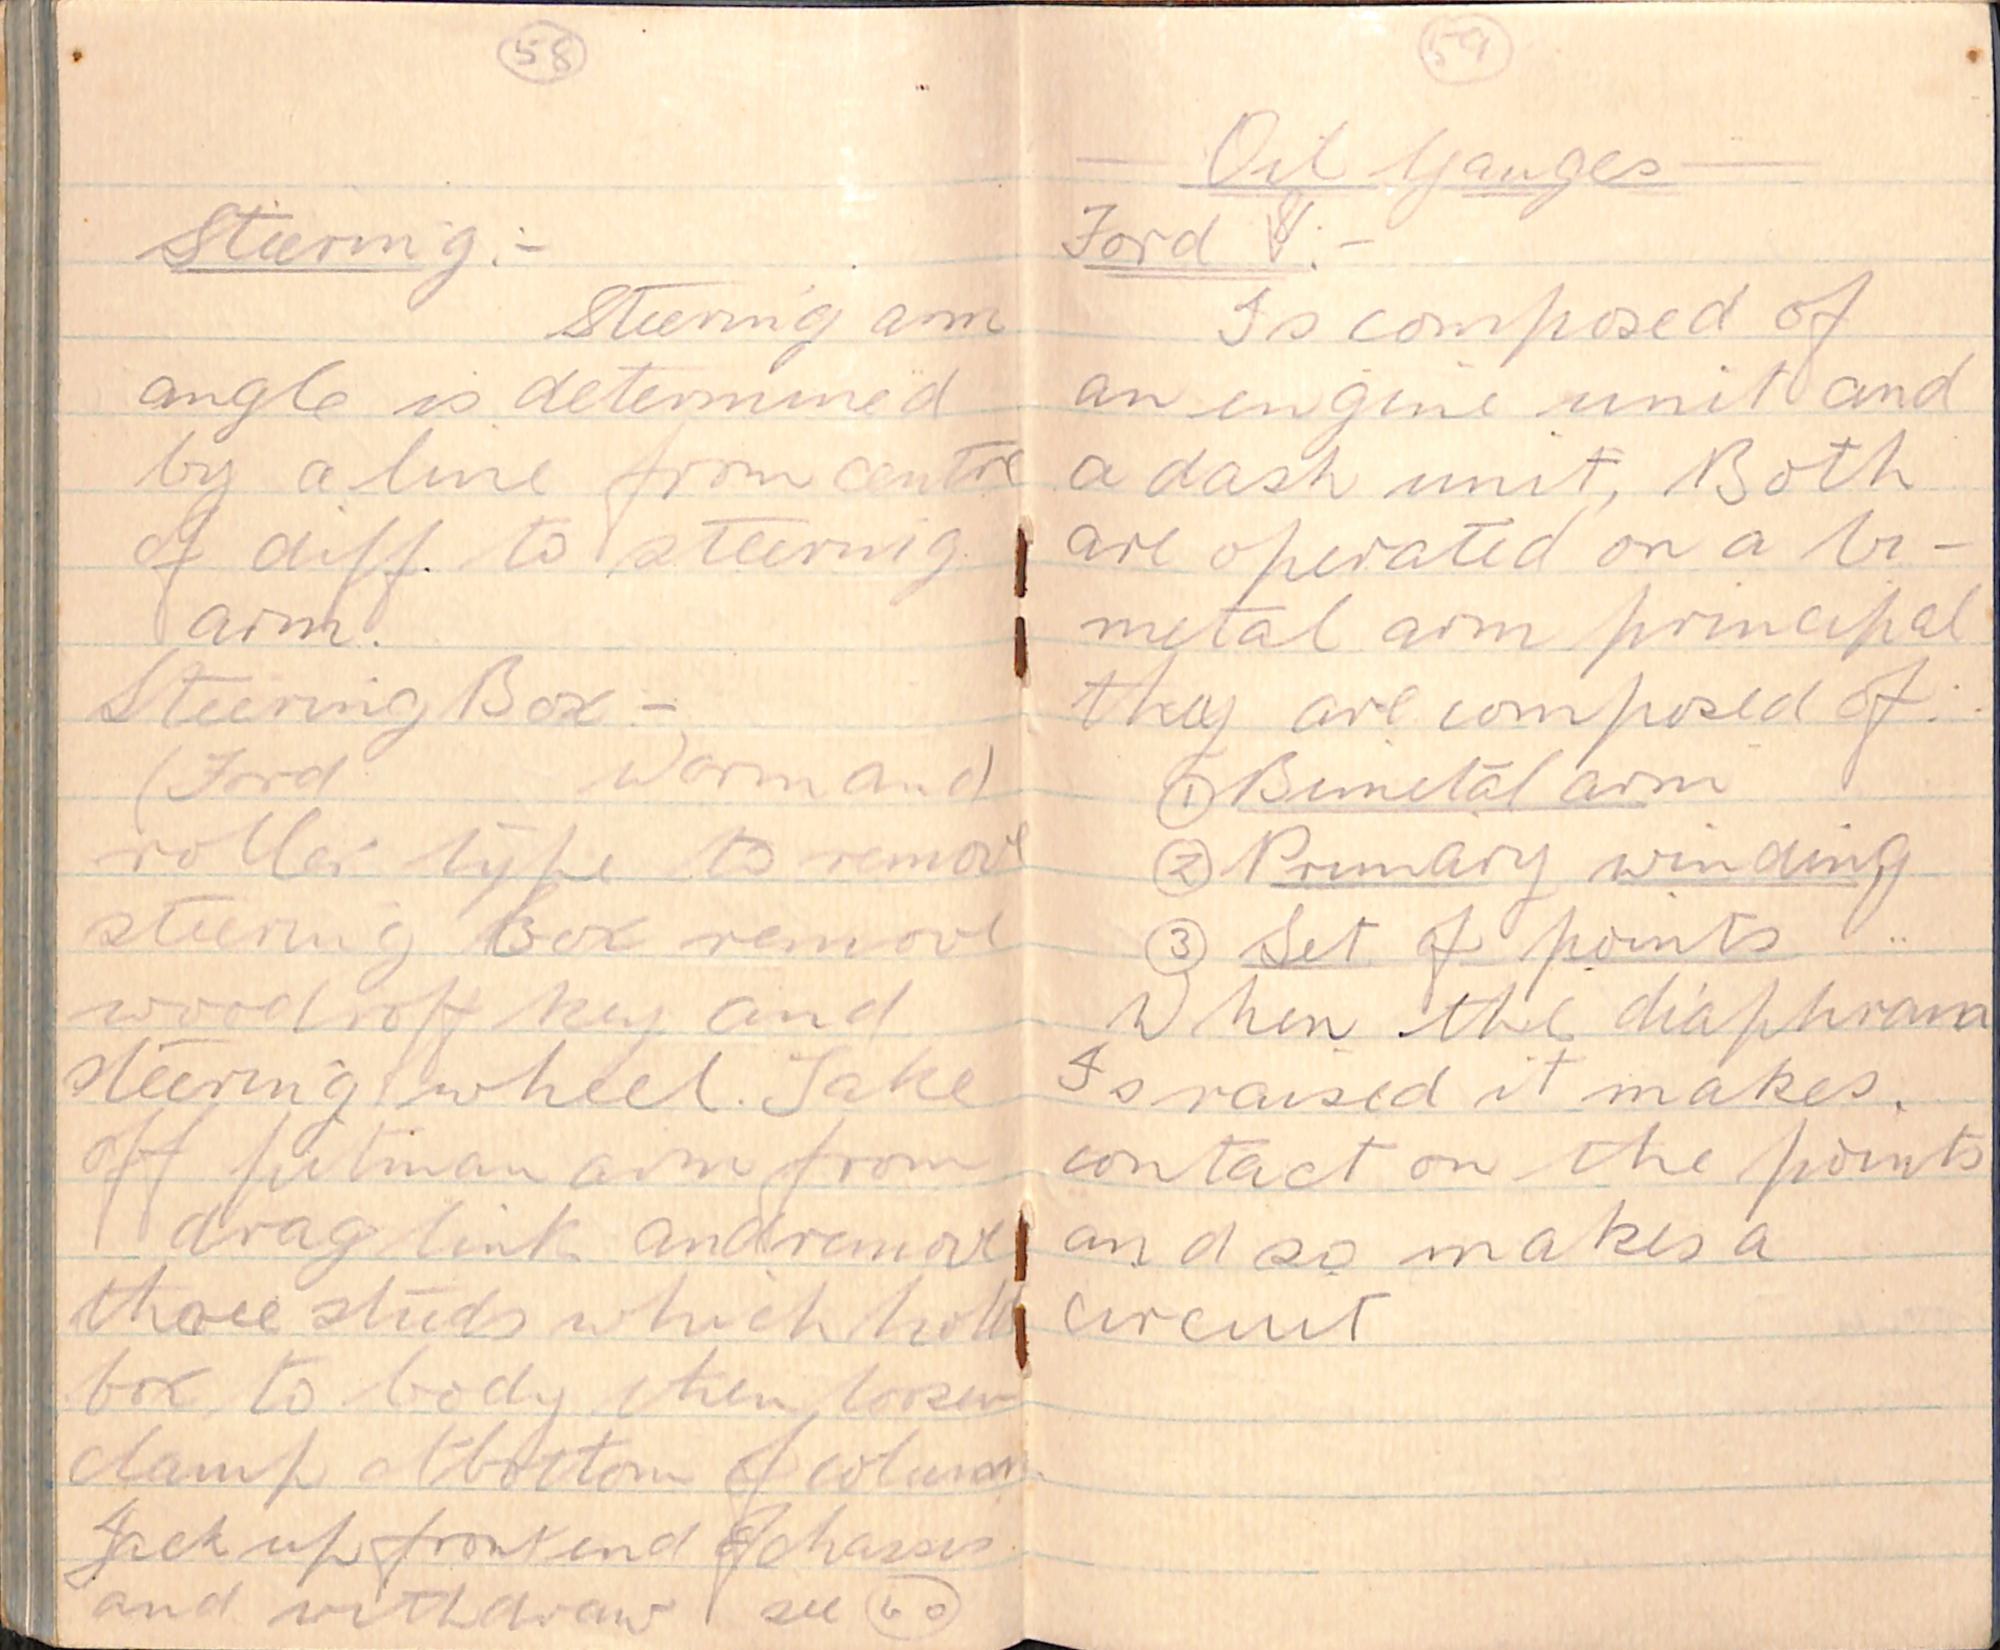 58
Steering:-
Steering arm
angle is determined
by a line from centre
of diff. to steering
arm.
Steering Box -
(Ford Worm and
roller type to remove
steering box remove
woodroff key and
steering wheel. Take
off pitman arm from
drag link and remove
three studs which hold
box to body then loosen
clamp at bottom of column
Jack up front end of chassis
and withdraw see 60
59
Oil Gauges
Ford V8:-
Is composed of
an engine unit and
a dash unit, Both
are operated on a bi-
metal arm principal
they are composed of:
1 Bimetal arm
2 Primary winding
3 Set of points
When the diaphram
Is raised it makes.
contact on the points
and so makes a
circuit